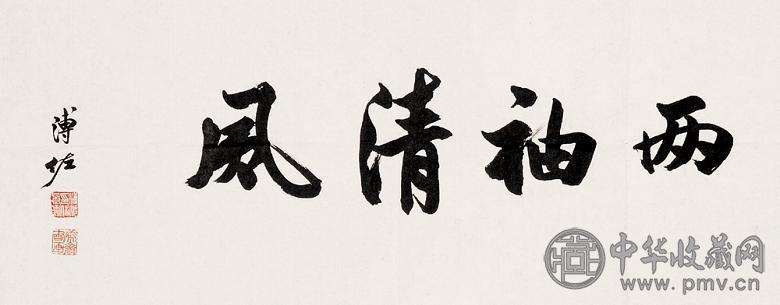 两袖清风
溥佐
中华收藏网
www.pmv.cn